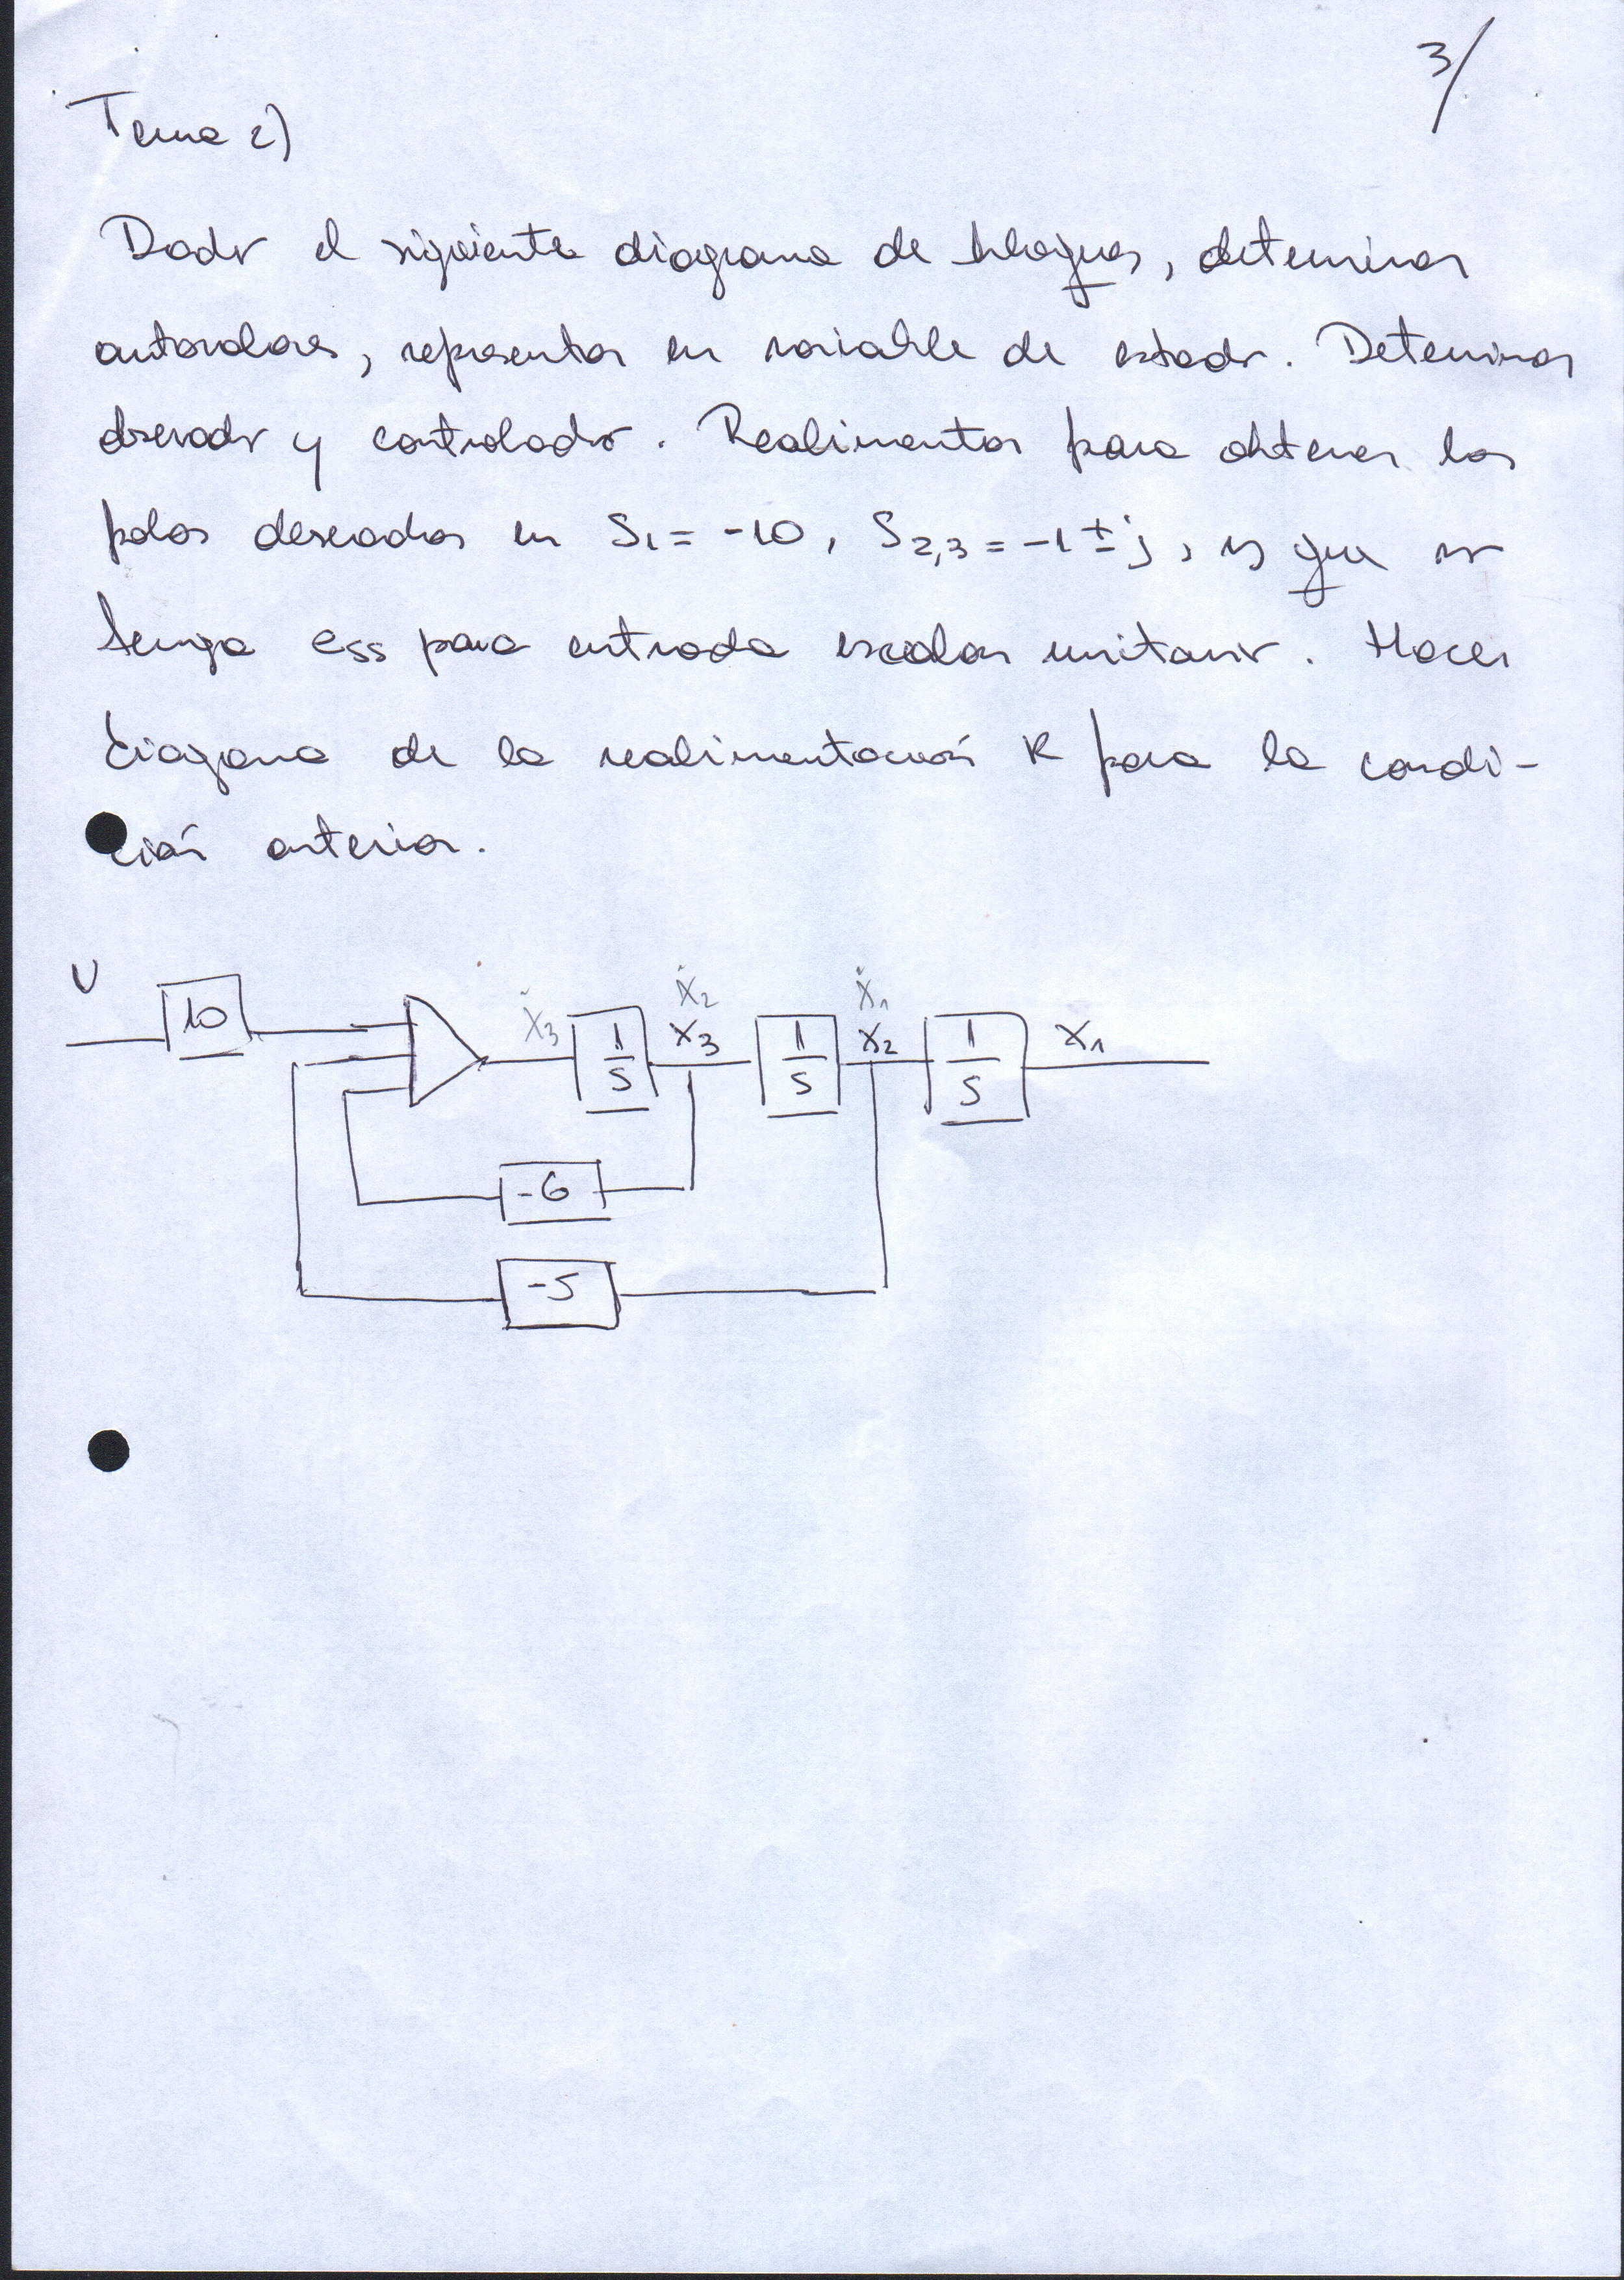 3/
Tema 2)
Dado el siguiente diagrama de bloques, determinar
autovalores, representar en variable de estado. Determinar
observador y controlador. Realimentar para obtener los
polos deseados en S1 = -10, S2,3 = -1 ± j, y que no
tenga ess para entrada escalon unitario. Hacer
diagrama de la realimentación K para la condi-
ción anterior.
U 10 Ẋ3 1/S Ẋ2 X3 1/S Ẋ1 X2 1/S X1
-6
-5